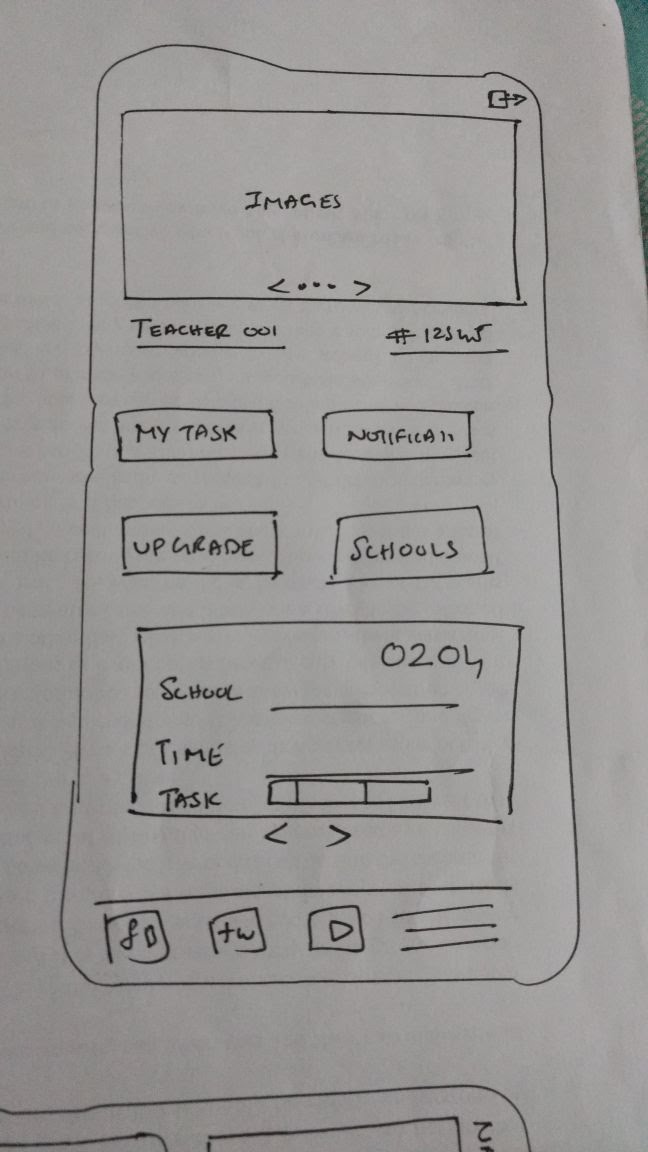 IMAGES
< ... >
TEACHER 001
#12345
MY TASK
NOTIFICATI
UPGRADE
SCHOOLS
0204
SCHOOL
TIME
TASK
< >
fb
tw